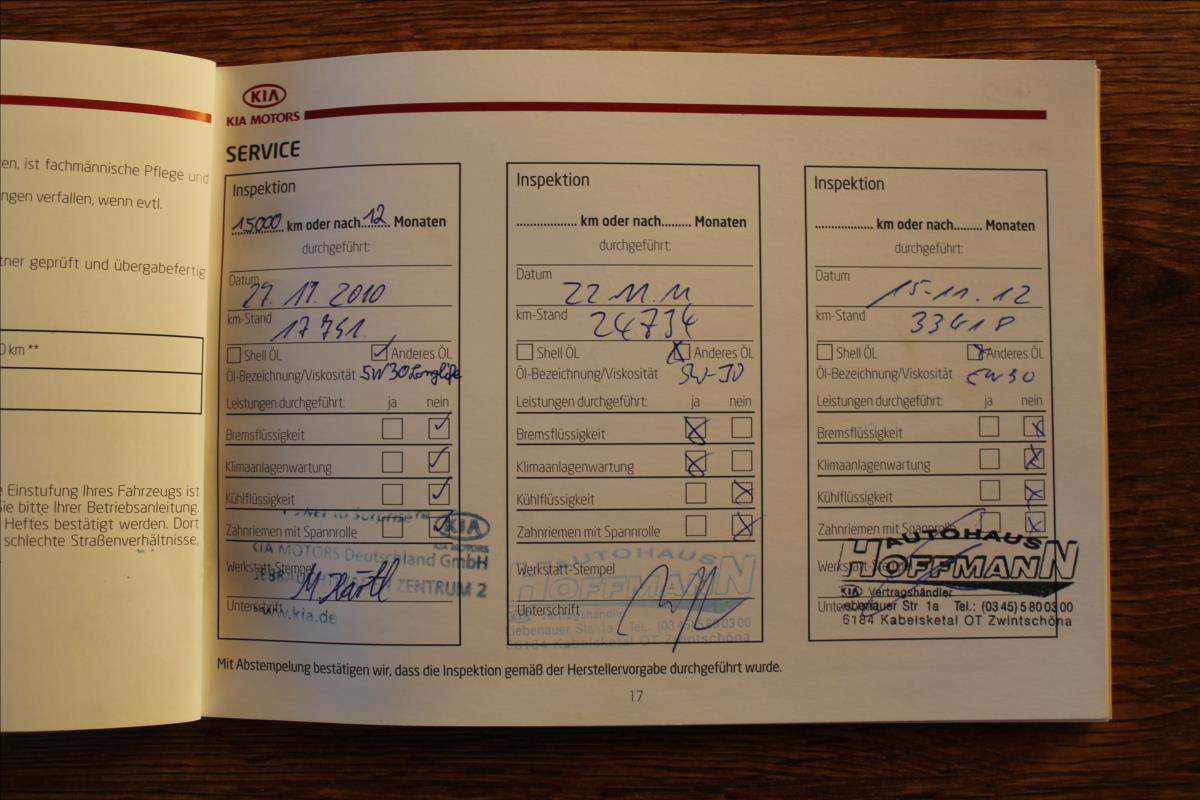 en, ist fachmännische Pflege und
ngen verfallen, wenn evtl.
tner geprüft und übergabefertig
0 km **
Einstufung Ihres Fahrzeugs ist
Sie bitte Ihrer Betriebsanleitung.
Heftes bestätigt werden. Dort
schlechte Straßenverhältnisse,
KIA
KIA MOTORS
SERVICE
Inspektion
15000 km oder nach 12 Monaten
durchgeführt:
Datum
29. 11. 2010
km-Stand
17 791
Shell ÖL Anderes ÖL
Öl-Bezeichnung/Viskosität 5W30 Longlife
Leistungen durchgeführt: ja nein
Bremsflüssigkeit
Klimaanlagenwartung
Kühlflüssigkeit
Zahnriemen mit Spannrolle
KIA
KIA MOTORS
KIA MOTORS Deutschland GmbH
Werkstatt-Stempel
ZENTRUM 2
Unterschrift
www.kia.de
Inspektion
................. km oder nach........ Monaten
durchgeführt:
Datum
22 11. 11
km-Stand
24734
Shell ÖL Anderes ÖL
Öl-Bezeichnung/Viskosität 5W-30
Leistungen durchgeführt: ja nein
Bremsflüssigkeit
Klimaanlagenwartung
Kühlflüssigkeit
Zahnriemen mit Spannrolle
AUTOHAUS
HOFFMANN
Werkstatt-Stempel
Vertragshändler
Unterschrift
Liebenauer Str. 1a Tel.: (03 45) 5 80 03 00
Kabelsketal OT Zwintschöna
Inspektion
................. km oder nach........ Monaten
durchgeführt:
Datum
15-11. 12
km-Stand
33418
Shell ÖL Anderes ÖL
Öl-Bezeichnung/Viskosität 5W30
Leistungen durchgeführt: ja nein
Bremsflüssigkeit
Klimaanlagenwartung
Kühlflüssigkeit
Zahnriemen mit Spannrolle
AUTOHAUS
HOFFMANN
Werkstatt-Stempel
KIA Vertragshändler
Unterschrift
ebenauer Str 1a Tel.: (03 45) 5 80 03 00
6184 Kabelsketal OT Zwintschöna
Mit Abstempelung bestätigen wir, dass die Inspektion gemäß der Herstellervorgabe durchgeführt wurde.
17